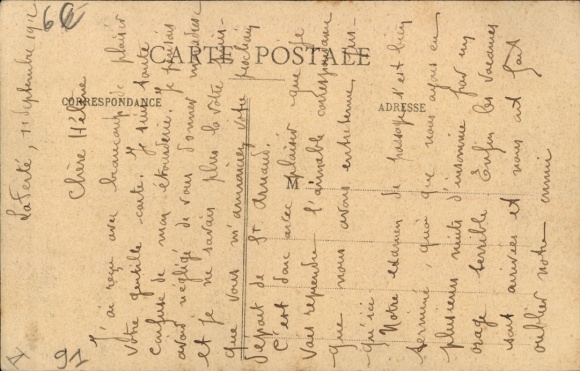 60
CARTE POSTALE
CORRESPONDANCE
ADRESSE
M
91
La Ferté, 11 Septembre 1912
Chère Hélène
J'ai reçu avec beaucoup de plaisir
votre gentille carte. Je suis toute
confuse de mon étourderie. Je pensais
avoir négligé de vous donner mon adresse
et je ne savais plus la vôtre puis-
que vous m'annonciez votre prochain
départ de St Arnaud.
C'est donc avec plaisir que je
vais reprendre l'aimable correspondance
que nous avons entretenue jus-
qu'ici. Notre examen de passage s'est bien
terminé quoi que nous ayons eu
plusieurs nuits d'insomnie par un
orage terrible. Enfin les vacances
sont arrivées et nous ont fait
oublier notre ennui